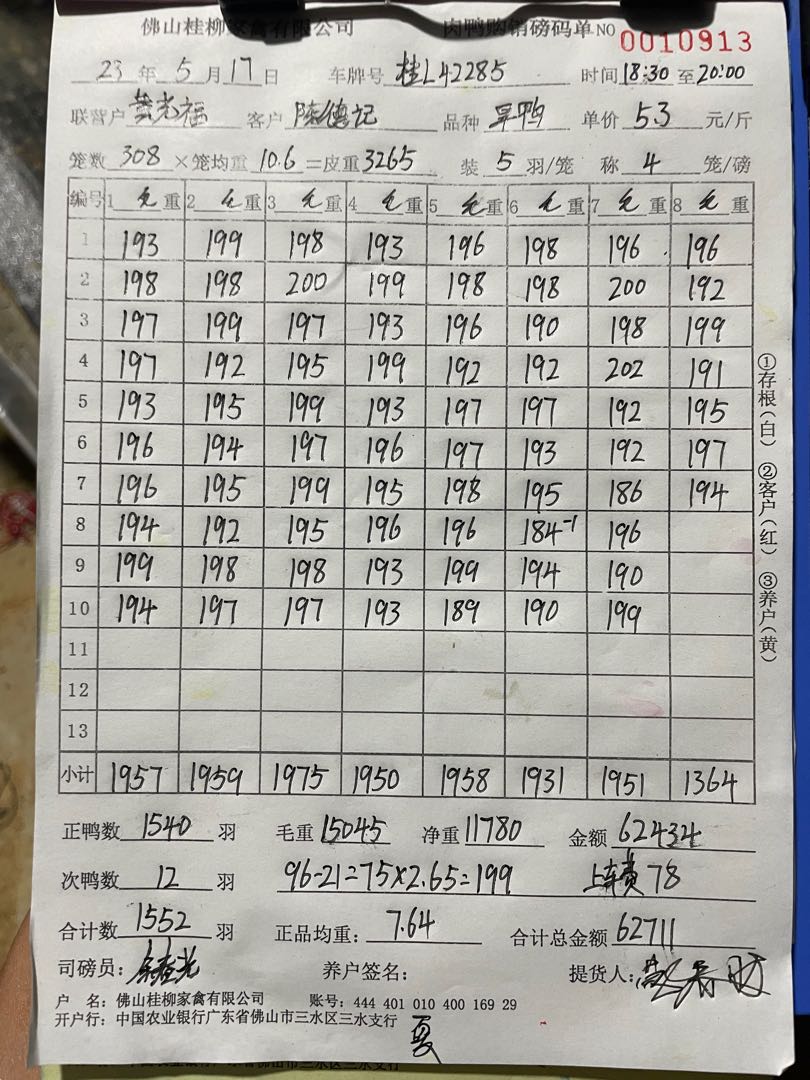 佛山桂柳家禽有限公司 肉鸭购销磅码单 NO 0010913
23 年 5 月 17 日 车牌号 桂L42285 时间 18:30 至 20:00
联营户 黄光福 客户 陈德记 品种 旱鸭 单价 5.3 元/斤
笼数 308 ×笼均重 10.6 =皮重 3265 装 5 羽/笼 称 4 笼/磅
编号 1 毛 重 2 毛 重 3 毛 重 4 毛 重 5 毛 重 6 毛 重 7 毛 重 8 毛 重
1 193 199 198 193 196 198 196 196
2 198 198 200 199 198 198 200 192
3 197 199 197 193 196 190 198 199
4 197 192 195 199 192 192 202 191
5 193 195 199 193 197 197 192 195
6 196 194 197 196 197 193 192 197
7 196 195 199 195 198 195 186 194
8 194 192 195 196 196 184-1 196
9 199 198 198 193 199 194 190
10 194 197 197 193 189 190 199
11
12
13
小计 1957 1959 1975 1950 1958 1931 1951 1364
①存根(白) ②客户(红) ③养户(黄)
正鸭数 1540 羽 毛重 15045 净重 11780 金额 62434
次鸭数 12 羽 96-21=75×2.65=199 上车费 78
合计数 1552 羽 正品均重: 7.64 合计总金额 62711
司磅员: 养户签名: 提货人:
户 名: 佛山桂柳家禽有限公司 账号: 444 401 010 400 169 29
开户行: 中国农业银行广东省佛山市三水区三水支行
夏